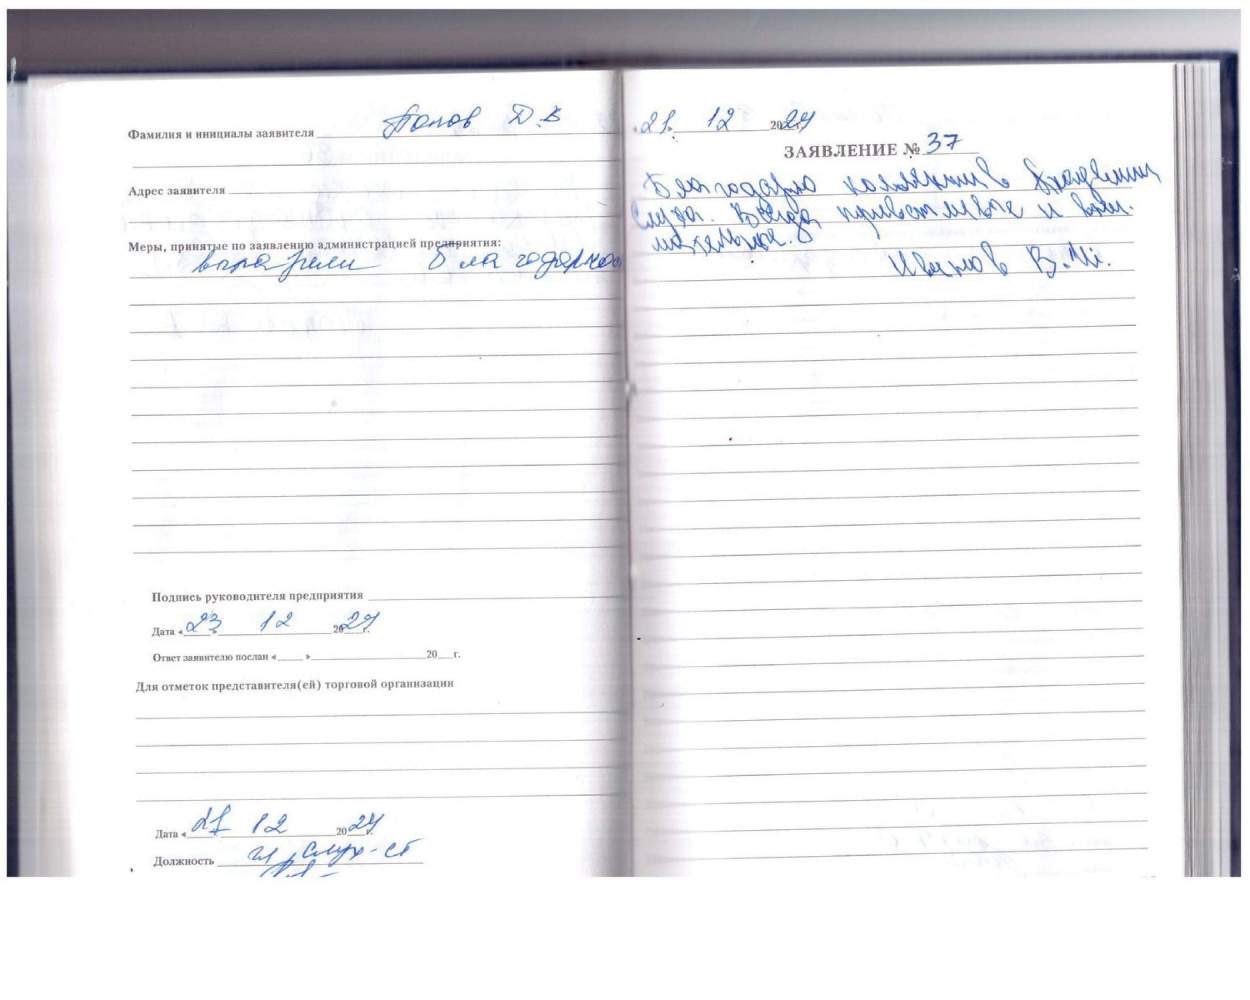 Фамилия и инициалы заявителя Попов Д.В
Адрес заявителя
Меры, принятые по заявлению администрацией предприятия:
выразили благодарнос
Подпись руководителя предприятия
Дата « 23 » 12 2024 г.
Ответ заявителю послан « » 20 г.
Для отметок представителя(ей) торговой организации
Дата « 21 12 2024 г.
Должность
21. 12 2024
ЗАЯВЛЕНИЕ № 37
Благодарю коллектив Академии
Слуха. Всегда приветливые и вни-
мательные.
Иванов В.М.